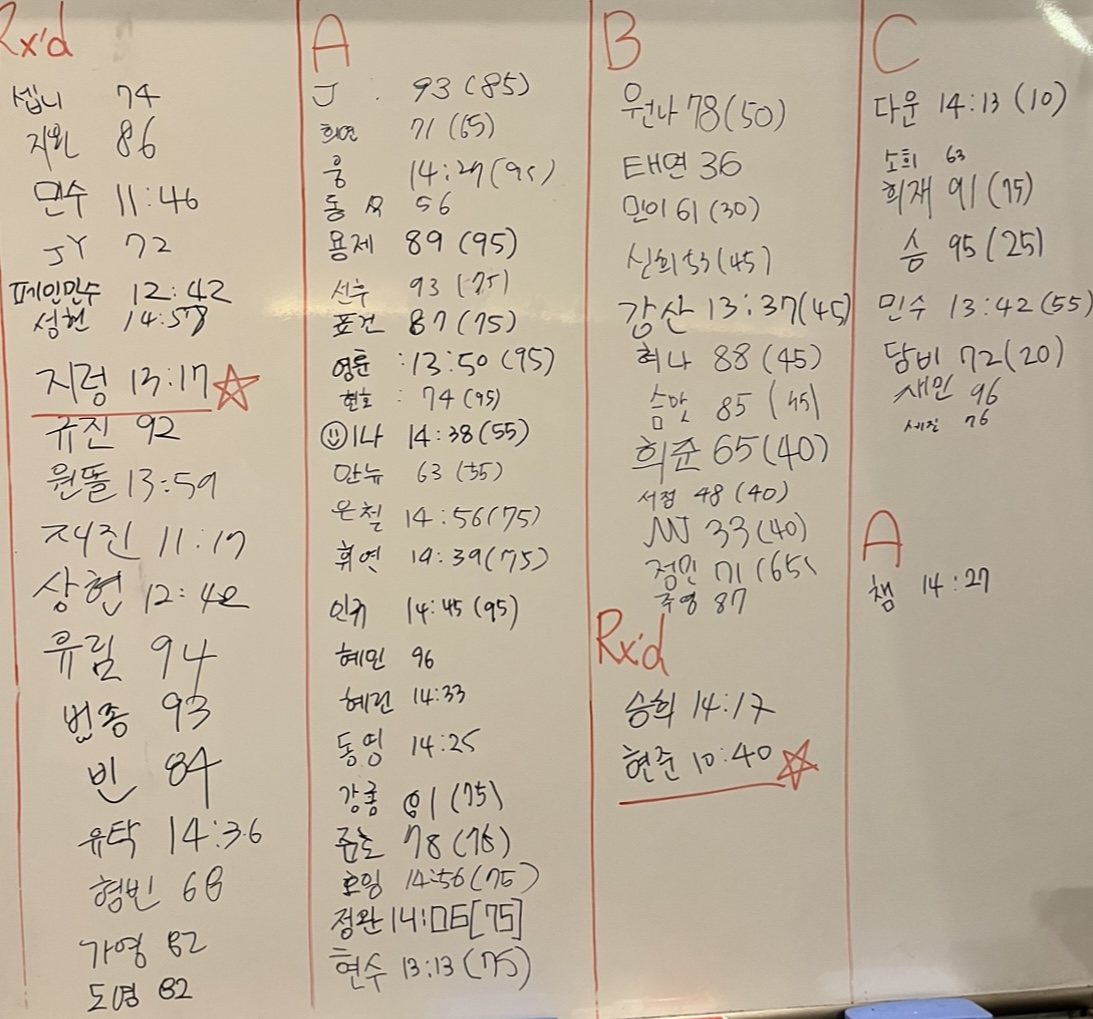 Rx'd
셉니 74
지완 86
민수 11:46
JY 72
페인민수 12:42
성현 14:58
지령 13:17
규진 92
원똘 13:59
재진 11:19
상현 12:42
류림 94
범종 93
빈 84
유탁 14:36
형빈 68
가영 82
도영 82
A
J 93 (85)
희연 71 (65)
웅 14:29 (95)
동 56
용제 89 (95)
선우 93 (75)
표건 87 (75)
영훈 : 13:50 (95)
현호 : 74 (95)
이나 14:38 (55)
만뉴 63 (55)
은철 14:56 (75)
휘연 14:39 (75)
인귀 14:45 (95)
혜민 96
혜린 14:33
동영 14:25
강룡 91 (75)
준호 78 (76)
호잉 14:56 (75)
정완 14:06 [75]
현수 13:13 (75)
B
우나 78 (50)
태연 36
민이 61 (30)
신희 53 (45)
갑산 13:37 (45)
혜나 88 (45)
슴맛 85 (45)
희준 65 (40)
서정 48 (40)
NJ 33 (40)
정민 71 (65)
주영 87
Rx'd
승희 14:17
현준 10:40
C
다운 14:13 (10)
소희 63
희재 91 (75)
승 95 (25)
민수 13:42 (55)
담비 72 (20)
새민 96
세진 76
A
챔 14:27